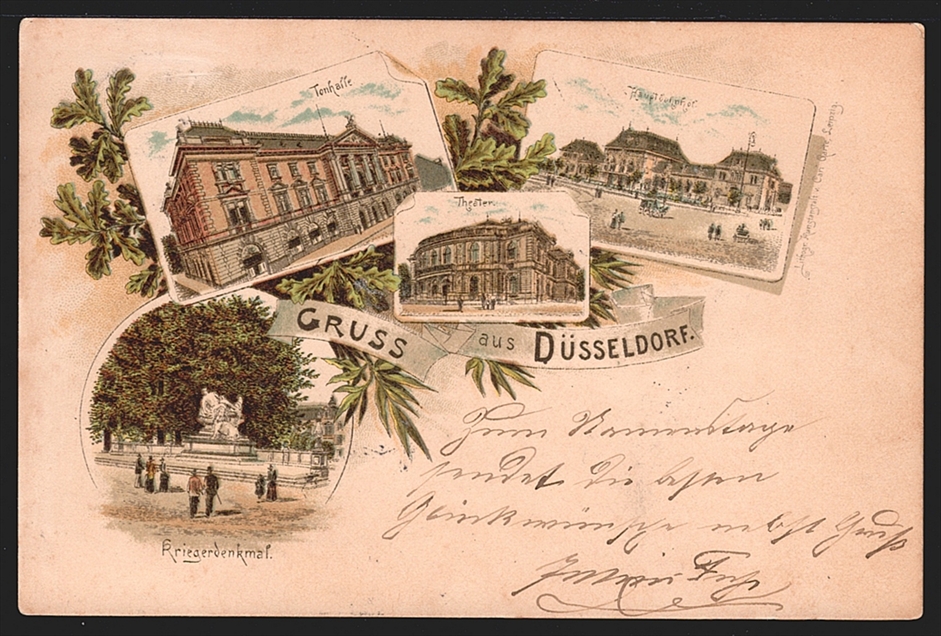 Tonhalle
Hauptbahnhof
Theater.
GRUSS aus DÜSSELDORF.
Kriegerdenkmal.
Zum Namenstage
sendet die besten
Glückwünsche nebst Gruß